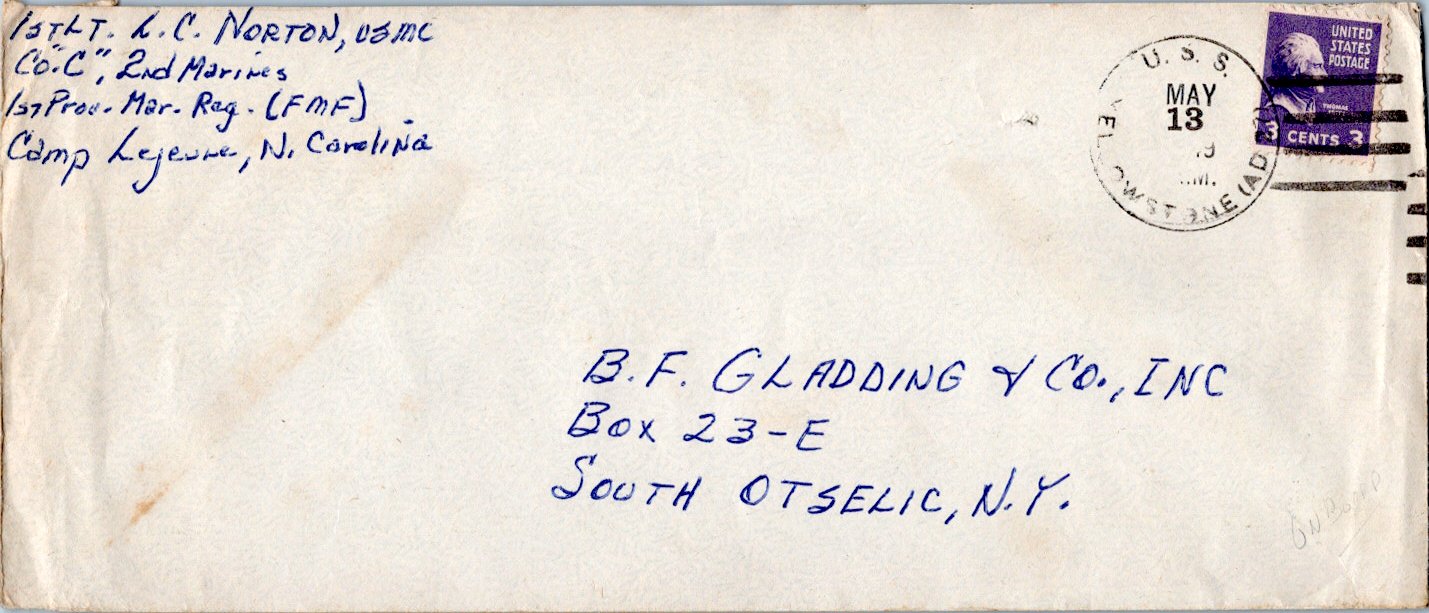 1ST LT. L. C. NORTON, USMC
Co. "C", 2nd Marines
1st Prov. Mar. Reg. (FMF)
Camp Lejeune, N. Carolina
U. S. S.
MAY
13
9
.M.
YELLOWSTONE (AD
UNITED
STATES
POSTAGE
THOMAS
3 CENTS 3
B. F. GLADDING & Co., INC
Box 23-E
SOUTH OTSELIC, N.Y.
ON BOARD